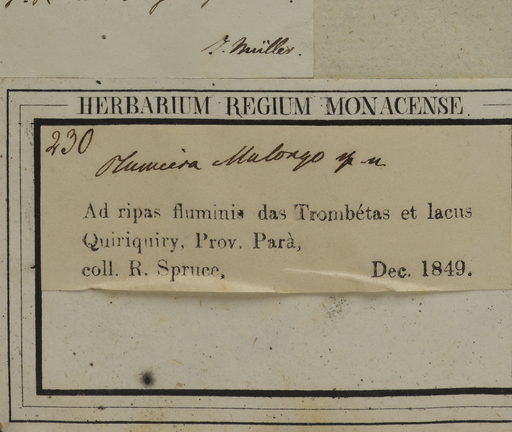 J. Müller.
HERBARIUM REGIUM MONACENSE.
230
Plumeira Mulongo sp n
Ad ripas fluminis das Trombétas et lacus
Quiriquiry, Prov. Parà,
coll. R. Spruce, Dec. 1849.